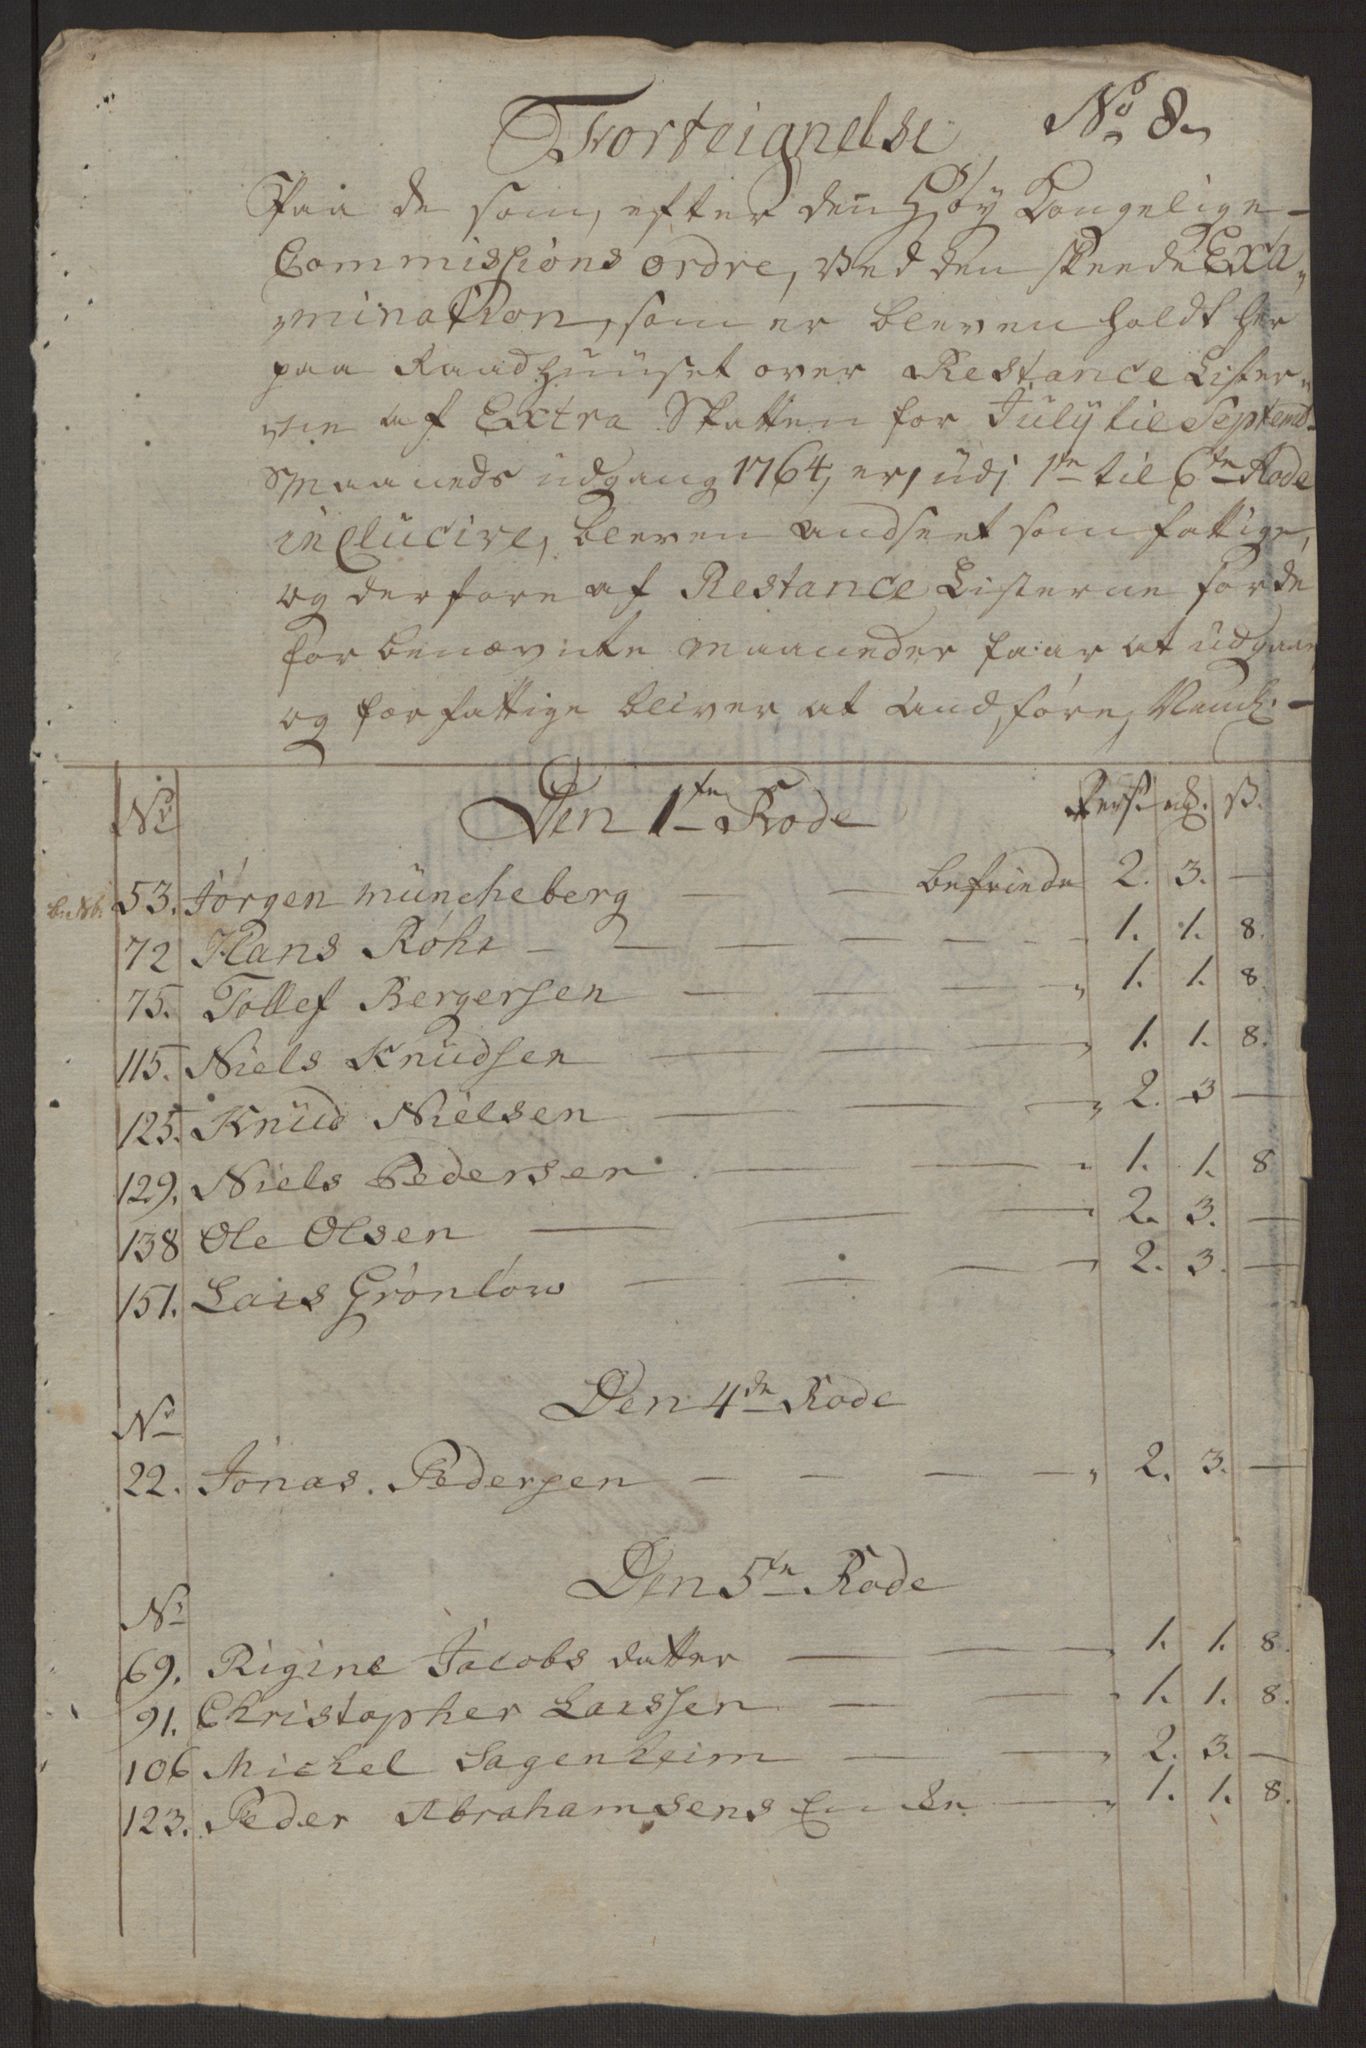 No 8.
Forteignelse
Paa de som, efter den Høy Kongelige
Commissions ordre, ved den skeede Exa„
„mination, som er bleven holdt her
paa Raadhuuset over Restance Lister„
„ne af Extra Skatten for July til Septemb.
Maaneds udgang 1764, er, udj 1te til 6te Rode
inclucive, bleven andseet som fattige,
og derfore af Restance Listerne for de
forbenævnte maaneder faar at udgaae,
og for fattige bliver at andføre, Nemlig:
Nr Den 1te Rode Pers. rdl. ß.
53. Jørgen müncheberg — — befriede 2. 3. —
72 Hans Røhr — — — — — 1. 1. 8.
75. Tollef Bergersen — — — „ 1. 1. 8.
115. Niels Knudsen — — — „ 1. 1. 8.
125. Knud Nielsen — — — „ 2. 3 —
129. Niels Pedersen — — „ 1. 1. 8
138 Ole Olsen — — — „ 2. 3. —
151. Lars Grönlow — — — — „ 2. 3. —
Den 4de Rode
Nr
22. Jonas Pedersen — — — — „ 2. 3. —
Den 5te Rode
Nr
69. Rigine Jacobs datter — — — „ 1. 1. 8.
91. Christopher Larssen — — „ 1. 1. 8.
106 Michel Sagenheim — — „ 2. 3. —
123. Peder Abrahamsens Encke — „ 1. 1. 8.